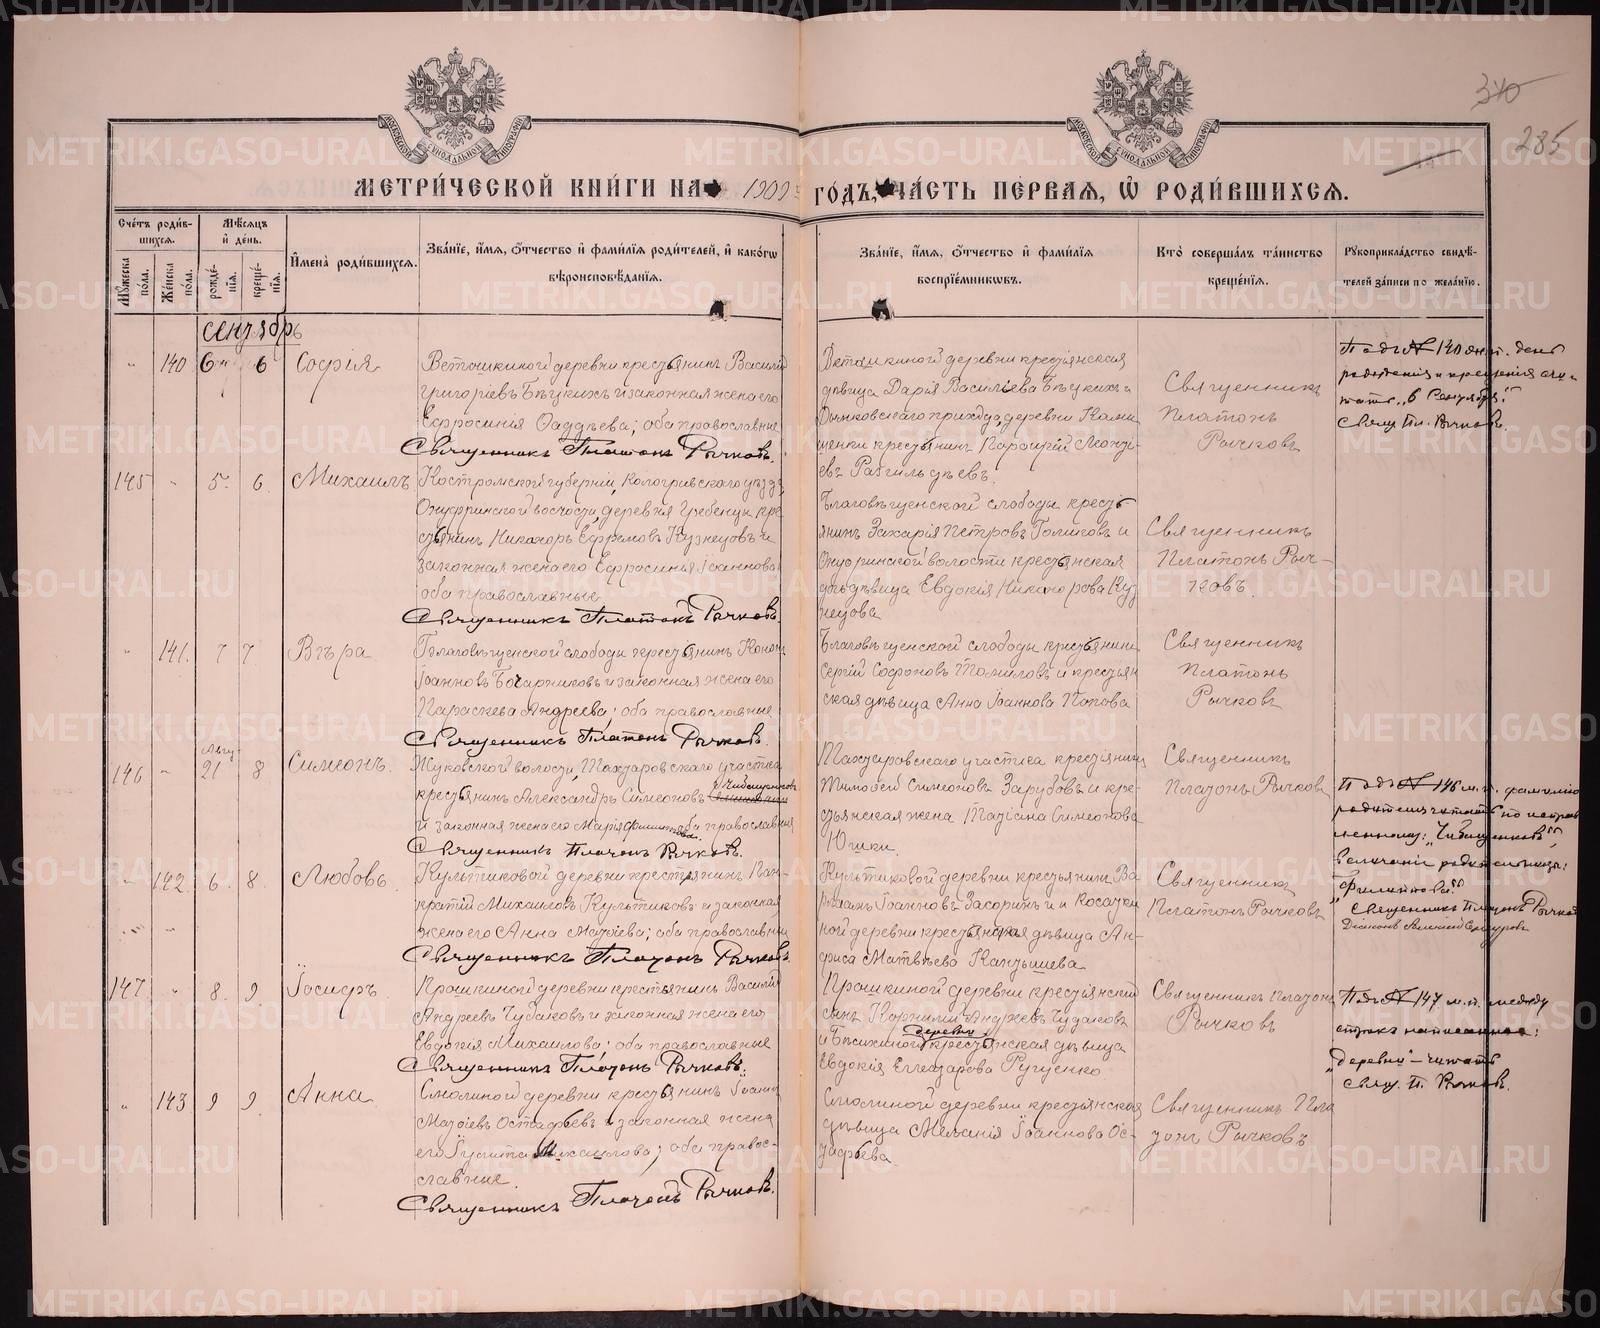 340
285
МЕТРИ́ЧЕСКОЙ КНИ́ГИ НА 1909 ГО́ДЪ, ЧА́СТЬ ПЕ́РВАЯ, Ѡ РОДИ́ВШИХСЯ.
Сче́тъ роди́в-
шихся.
Му́жеска по́ла.
Же́нска по́ла.
Мѣ́сяцъ
и де́нь.
рожде́-
нія.
креще́-
нія.
Имена̀ роди́вшихся.
Зва́ніе, и́мя, о́тчество и фами́лія роди́телей, и како́гѡ
вѣроисповѣ́данія.
Зва́ніе, и́мя, о́тчество и фами́лія
воспріе́мникѡвъ.
Кто̀ соверша́лъ та́инство
креще́нія.
Рукоприкла́дство свидѣ́-
телей за́писи по жела́нію.
Сентябрь
140 6 6 Софія
Ветошкиной деревни крестьянинъ Василій
Григоріевъ Бѣцкихъ и законная жена его
Ефросинія Фаддѣева; оба православные
Священникъ Платонъ Рычковъ.
Ветошкиной деревни крестьянская
дѣвица Дарія Васильева Бѣцкихъ и
приход, деревни
крестьянинъ
Священникъ
Платонъ
Рычковъ
Подъ № 140 день
рожденія и крещенія счи-
тать „6 Сентября".
Свящ. Пл. Рычковъ.
145 5. 6. Михаилъ
Костромской губерніи, Кологривского уѣзда
волости, деревня кре-
стьянинъ Никаноръ Ефремовъ Кузнецовъ и
законная жена его Евфросинія Іоаннова
оба православные
Священникъ Платонъ Рычковъ.
Благовѣщенской слободы кресть-
янинъ Захарія Петровъ Голиковъ и
волости крестьянская
дѣвица Евдокія Никанорова Куз-
нецова
Священникъ
Платонъ Рыч-
ковъ.
141. 7 7. Вѣра
Благовѣщенской слободы крестьянинъ Кононъ
Іоанновъ Бочарниковъ и законная жена его
Параскева Андреева; оба православные
Священникъ Платонъ Рычковъ.
Благовѣщенской слободы крестьянинъ
Сергій Софоновъ Томиловъ и крестьян
ская дѣвица Анна Іоаннова Попова
Священникъ
Платонъ
Рычковъ
Авгу
146 21 8 Симеонъ.
Жуковской волости, участка
крестьянинъ Александръ Симеоновъ Чибищенковъ
и законная жена его Марія Филиппова оба православные
Священникъ Платонъ Рычковъ.
участка крестьянинъ
Тимоѳей Симеоновъ Зарубовъ и кре-
стьянская жена Татіана Симеонова
Юшки.
Священникъ
Платонъ Рычковъ
Подъ № 146 м. п. фамилію
родителя читать по исправ
ленному: „Чибищенковъ",
величаніе родительницы:
„Филиппова".
Священникъ Платонъ Рычковъ
Діаконъ
142 6. 8. Любовь.
Культиковой деревни крестьянинъ Пан-
кратій Михаиловъ Культиковъ и законная
жена его Анна Матѳіева; оба православные
Священникъ Платонъ Рычковъ.
Культиковой деревни крестьянинъ Ва-
рлаамъ Іоанновъ Засоринъ и
ной деревни крестьянская дѣвица Ан-
фиса Матвѣева Кандышева
Священникъ
Платонъ Рычковъ
147 8. 9. Іосифъ
Прошкиной деревни крестьянинъ Василій
Андреевъ Чудаковъ и законная жена его
Евдокія Михаилова; оба православные
Священникъ Платонъ Рычковъ.
Прошкиной деревни крестьянскій
сынъ Корнилій Андреевъ Чудаковъ
деревни
и крестьянская дѣвица
Евдокія Елеазарова Руденко
Священникъ Платонъ
Рычковъ
Подъ № 147 м. п. между
строкъ написанное:
„деревни" – читать
Свящ. П. Рычковъ.
143 9 9. Анна
Смолиной деревни крестьянинъ Іоаннъ
Матѳіевъ Остафьевъ и законная жена
его Іулитта Михаилова; оба право-
славные.
Священникъ Платонъ Рычковъ.
Смолиной деревни крестьянская
дѣвица Меланія Іоаннова Ос-
тафьева
Священникъ Пла
тонъ Рычковъ
METRIKI.GASO-URAL.RU